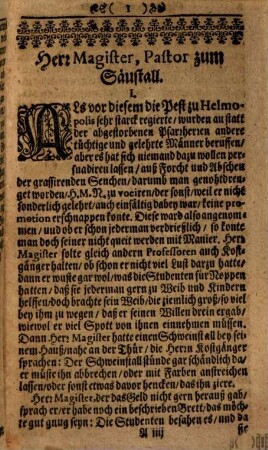 ( 1 )
Herr Magister, Pastor zum
Säustall.
I.
ALs vor diesem die Pest zu Helmo-
polis sehr starck regierte/ wurden an statt
der abgestorbenen Pfarrherren andere
tüchtige und gelehrte Männer beruffen/
aber es hat sich niemand dazu wollen per-
suadiren lassen/ auß Forcht und Abschen
der grassirenden Seuchen/ darumb man genohtdren-
get worden/ H. M. N. zu vociren/ der sonst/ weil er nicht
sonderlich gelehrt/ auch einfältig dabey war/ keine pro-
motion erschnappen konte. Diese ward also angenom-
men/ und ob er schon jederman verdrießlich/ so konte
man doch seiner nicht queit werden mit Manier. Herr
Magister solte gleich andern Professoren auch Kost-
gänger halten/ ob schon er nicht viel Lust darzu hatte/
dann er wuste gar wol/ was die Studenten für Noppen
hatten/ daß sie jederman gern zu Weib und Kindern
helffen/ doch brachte sein Weib/ die ziemlich groß/ so viel
bey ihm zu wegen/ daß er seinen Willen drein ergab/
wiewol er viel Spott von ihnen einnehmen müssen.
Dann Herr Magister hatte einen Schweinstall bey sei-
nem Hauß/ nahe an der Thür/ die Herrn Kostgänger
sprachen: Der Schweinstall stünde gar schändlich da/
er müste ihn abbrechen/ oder mit Farben anstreichen
lassen/ oder sonst etwas davor hencken/ das ihn ziere.
Herr Magister, der das Geld nicht gern herauß gab/
sprach er/ er habe noch ein beschrieben Brett/ das möch-
te gut gnug seyn: Die Studenten besahen es/ und da
A iiij